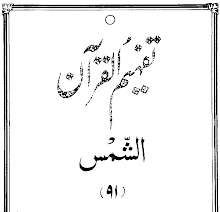 تفہیم القرآن
الشَّمْس
(۹۱)